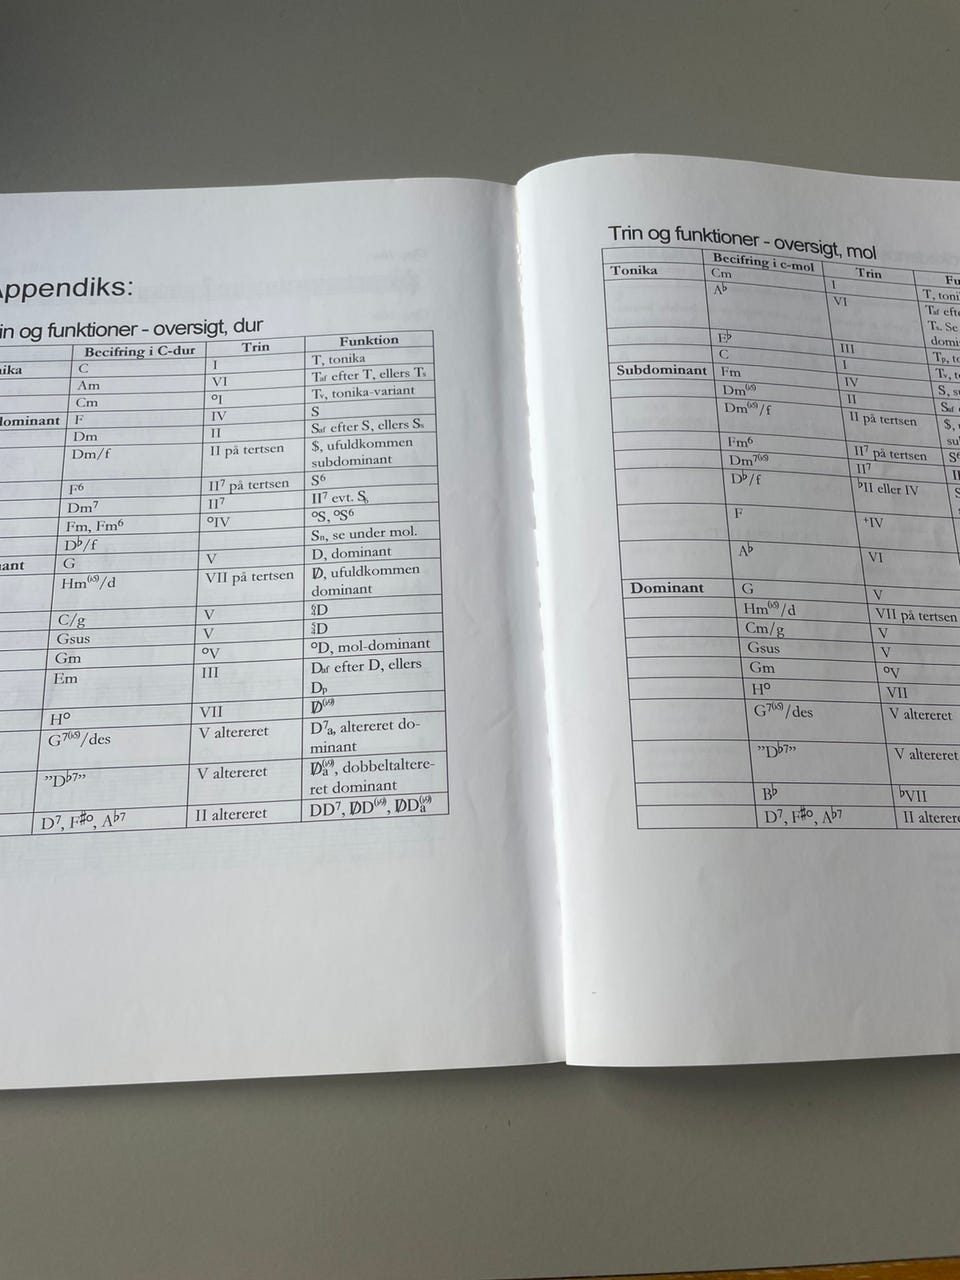 Appendiks:
in og funktioner - oversigt, dur
Becifring i C-dur Trin Funktion
ika C I T, tonika
Am VI Taf efter T, ellers Ts
Cm ºI Tv, tonika-variant
dominant F IV S
Dm II Saf efter S, ellers Ss
Dm/f II på tertsen $, ufuldkommen
subdominant
F6 II7 på tertsen S6
Dm7 II7 II7 evt.
Fm, Fm6 ºIV ºS, ºS6
D♭/f Sn, se under mol.
ant G V D, dominant
Hm(♭5)/d VII på tertsen D̸, ufuldkommen
dominant
C/g V D
Gsus V D
Gm ºV ºD, mol-dominant
Em III Daf efter D, ellers
Dp
Hº VII D̸(♭9)
G7(♭5)/des V altereret D7a, altereret do-
minant
”D♭7” V altereret D̸a(♭9), dobbeltaltere-
ret dominant
D7, F♯º, A♭7 II altereret DD7, D̸D(♭9), D̸Da(♭9)
Trin og funktioner - oversigt, mol
Becifring i c-mol Trin Fu
Tonika Cm I T, toni
A♭ VI Taf efte
Ts. Se
domi
E♭ III Tp, to
C I Tv, t
Subdominant Fm IV S, s
Dm(♭5) II Saf
Dm(♭5)/f II på tertsen $,
su
Fm6 II7 på tertsen S6
Dm7(♭5) II7 II
D♭/f ♭II eller IV S
F +IV
A♭ VI
Dominant G V
Hm(♭5)/d VII på tertsen
Cm/g V
Gsus V
Gm ºV
Hº VII
G7(♭5)/des V altereret
”D♭7” V altereret
B♭ ♭VII
D7, F♯º, A♭7 II alterer